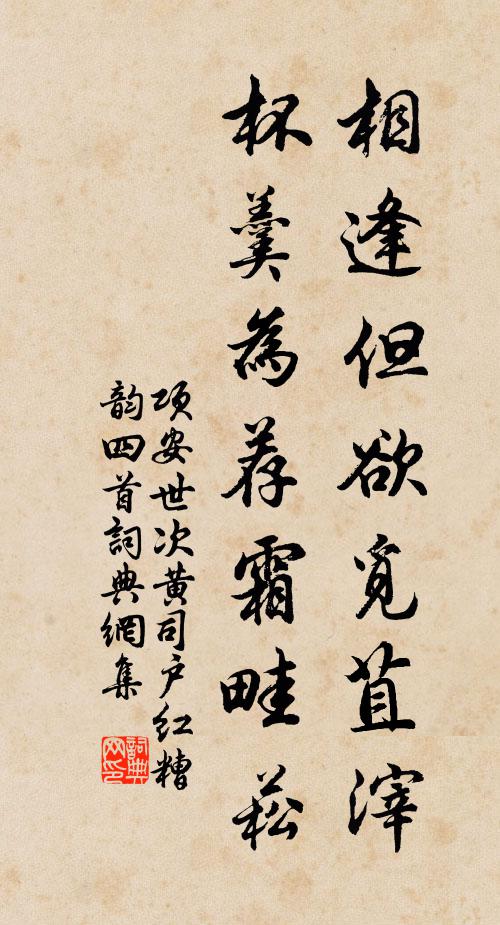 相逢但欲觅苴滓
杯羹為荐霜畦菘
项安世次黄司户红糟
韵四首詞典網集
詞典
网印